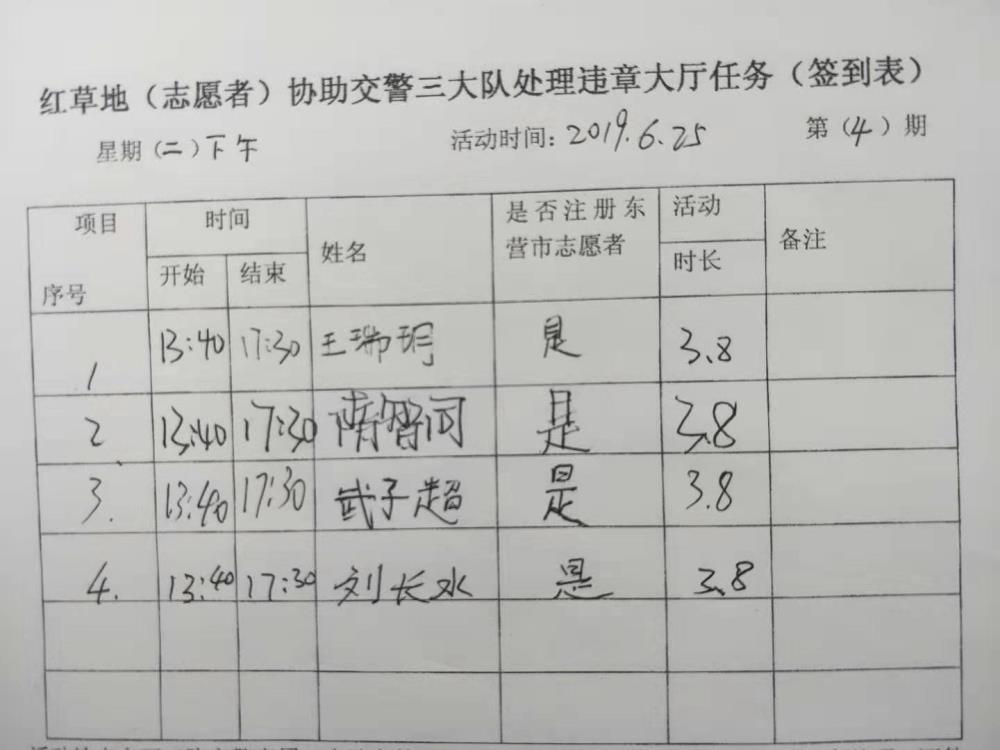 红草地（志愿者）协助交警三大队处理违章大厅任务（签到表）
星期（二）下午 活动时间：2019.6.25 第（4）期
项目 时间 姓名 是否注册东营市志愿者 活动时长 备注
序号 开始 结束
1 13:40 17:30 王瑞玥 是 3.8
2 13:40 17:30 隋智问 是 3.8
3. 13:40 17:30 武子超 是 3.8
4. 13:40 17:30 刘长水 是 3.8